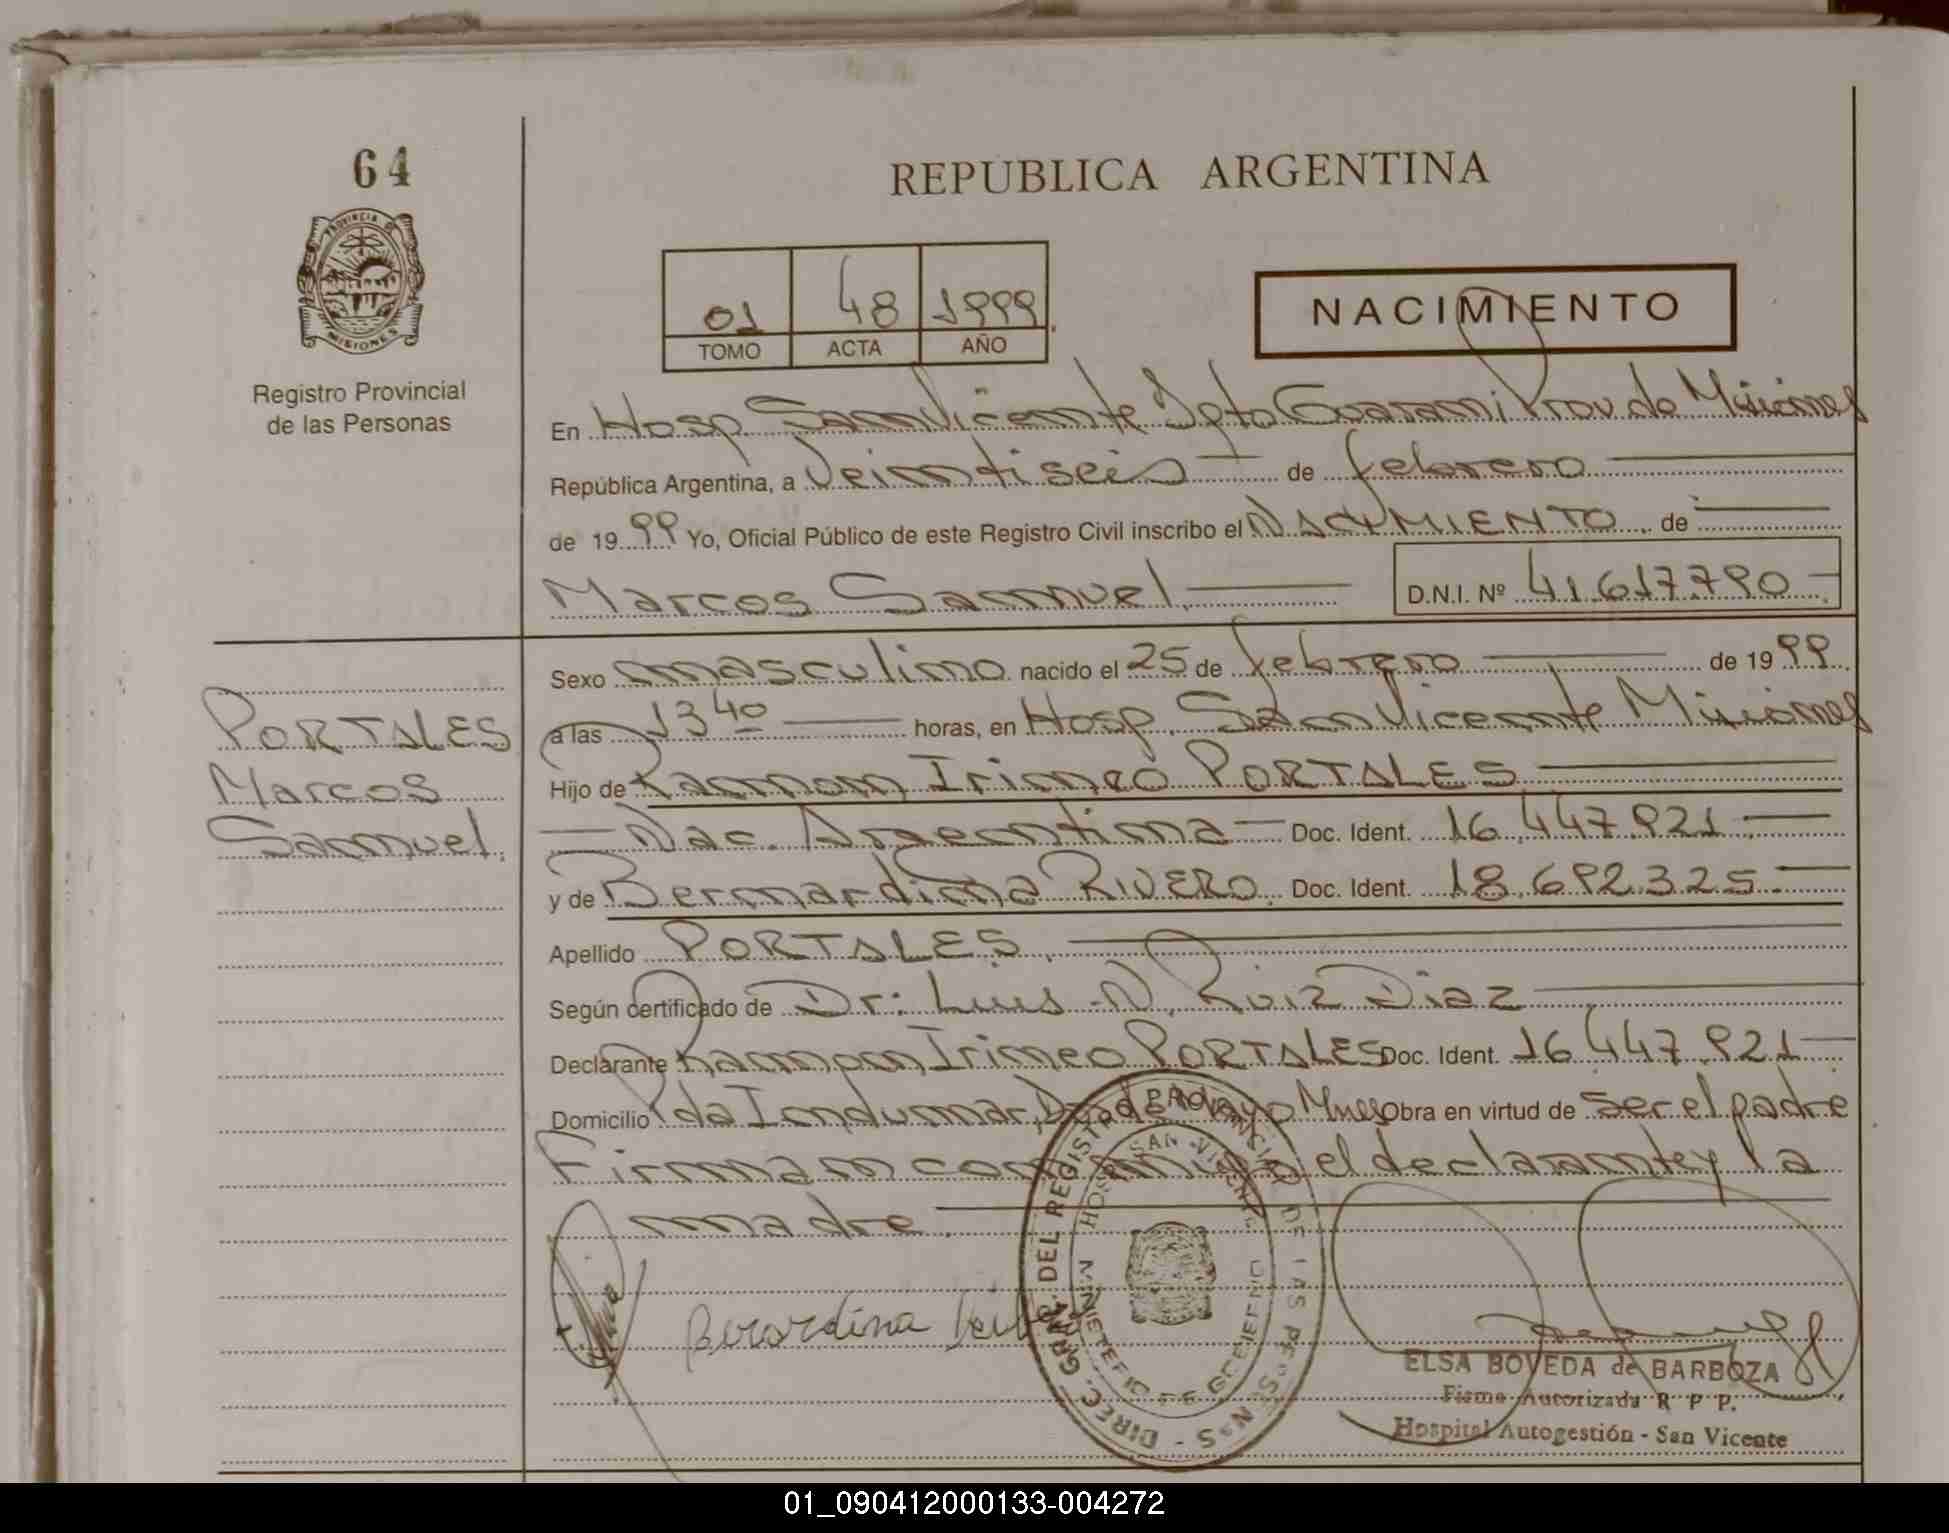 64
REPUBLICA ARGENTINA
PROVINCIA DE
MISIONES
Registro Provincial
de las Personas
01 48 1999
TOMO ACTA AÑO
NACIMIENTO
En Hosp. San Vicente Dpto Guarani Prov de Misiones
República Argentina, a Veintiseis de febrero
de 1999 Yo, Oficial Público de este Registro Civil inscribo el NACIMIENTO de
Marcos Samuel D.N.I. Nº 41.617.790
Sexo masculino nacido el 25 de febrero de 1999
PORTALES
Marcos
Samuel.
a las 13 40 horas, en Hosp. San Vicente Misiones
Hijo de Ramon Irineo PORTALES
Nac. Argentina Doc. Ident. 16.447.921
y de Bernardina RIVERO. Doc. Ident. 18.692.325
Apellido PORTALES.
Según certificado de Dr: Luis N. Ruiz Diaz
Declarante Ramon Irineo PORTALES Doc. Ident. 16.447.921
Domicilio Pda Indumar, de Mayo Mnes Obra en virtud de ser el padre
Firman conmigo el declarante y la
madre.
DIREC. GRAL. DEL REGISTRO PROVINCIAL DE LAS PERSONAS
HOSP. SAN VICENTE
MINISTERIO DE GOBIERNO
Berardina
ELSA BOVEDA de BARBOZA
Firma Autorizada R P P.
Hospital Autogestión - San Vicente
01_090412000133-004272